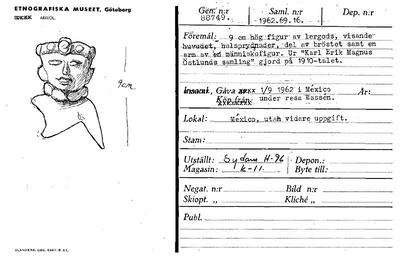 ETNOGRAFISKA MUSEET, Göteborg
ARKIOL.
9cm
Gen. n:r
Saml. n:r
Dep. n:r
88749.
1962.69.16.
Föremål: 9 cm hög figur av lergods, visande
huvudet, halsprydnader, del av bröstet samt en
arm av en människofigur. Ur "Karl Erik Magnus
Östlunds samling" gjord på 1910-talet.
Insaml., Gåva 1/9 1962 i México År:
Från under resa Wassén.
Lokal: México, utan vidare uppgift.
Stam:
Utställt: Sydam H-96 Depon.:
Magasin: K-11 Byte till:
Negat. n:r Bild n:r
Skiopt. „ Kliché „
Publ.